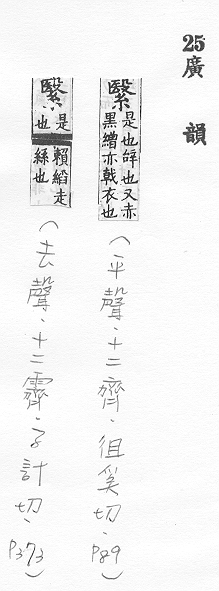 25 廣韻
繄 是也辝也又赤
黑繒亦戟衣也
(平聲.十二齊.徂奚切.P89)
繄 是
也
賴縚走
絲也
(去聲.十二霽.子計切.P373)